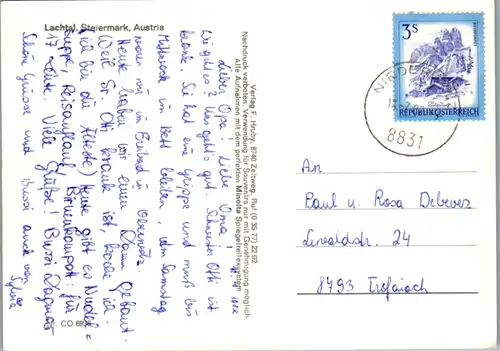 Lachtal, Steiermark, Austria
Liebe Oma!
Lieber Opa!
Wie geht es? Uns geht's gut. Schwester Otti ist
krank. Sie hat eine Grippe und muß bis
Mittwoch im Bett bleiben. Am Samstag
waren wir in
Heute haben wir einen Damm gebaut.
Weil Sr. Otti krank ist, koche ich.
(ich bin die Älteste) Heute gibt es Nudel=
suppe, Reisauflauf, Birnenkompott: für
17 Leute. Viele Grüße! Burgi Dagmar
Schöne Grüsse und Bussi auch von
Sylvia
CO 69
Verlag F. Hruby, 8740 Zeltweg, Ruf (0 35 77) 22 92
Nachdruck verboten. Verwendung für Souvenirs nur mit Genehmigung möglich.
Alle Aufnahmen mit dem perfekten Minolta Spiegelreflexsystem
3S
REPUBLIK ÖSTERREICH
8831
An
Paul u. Rosa Debever
24
8793 Trofaiach